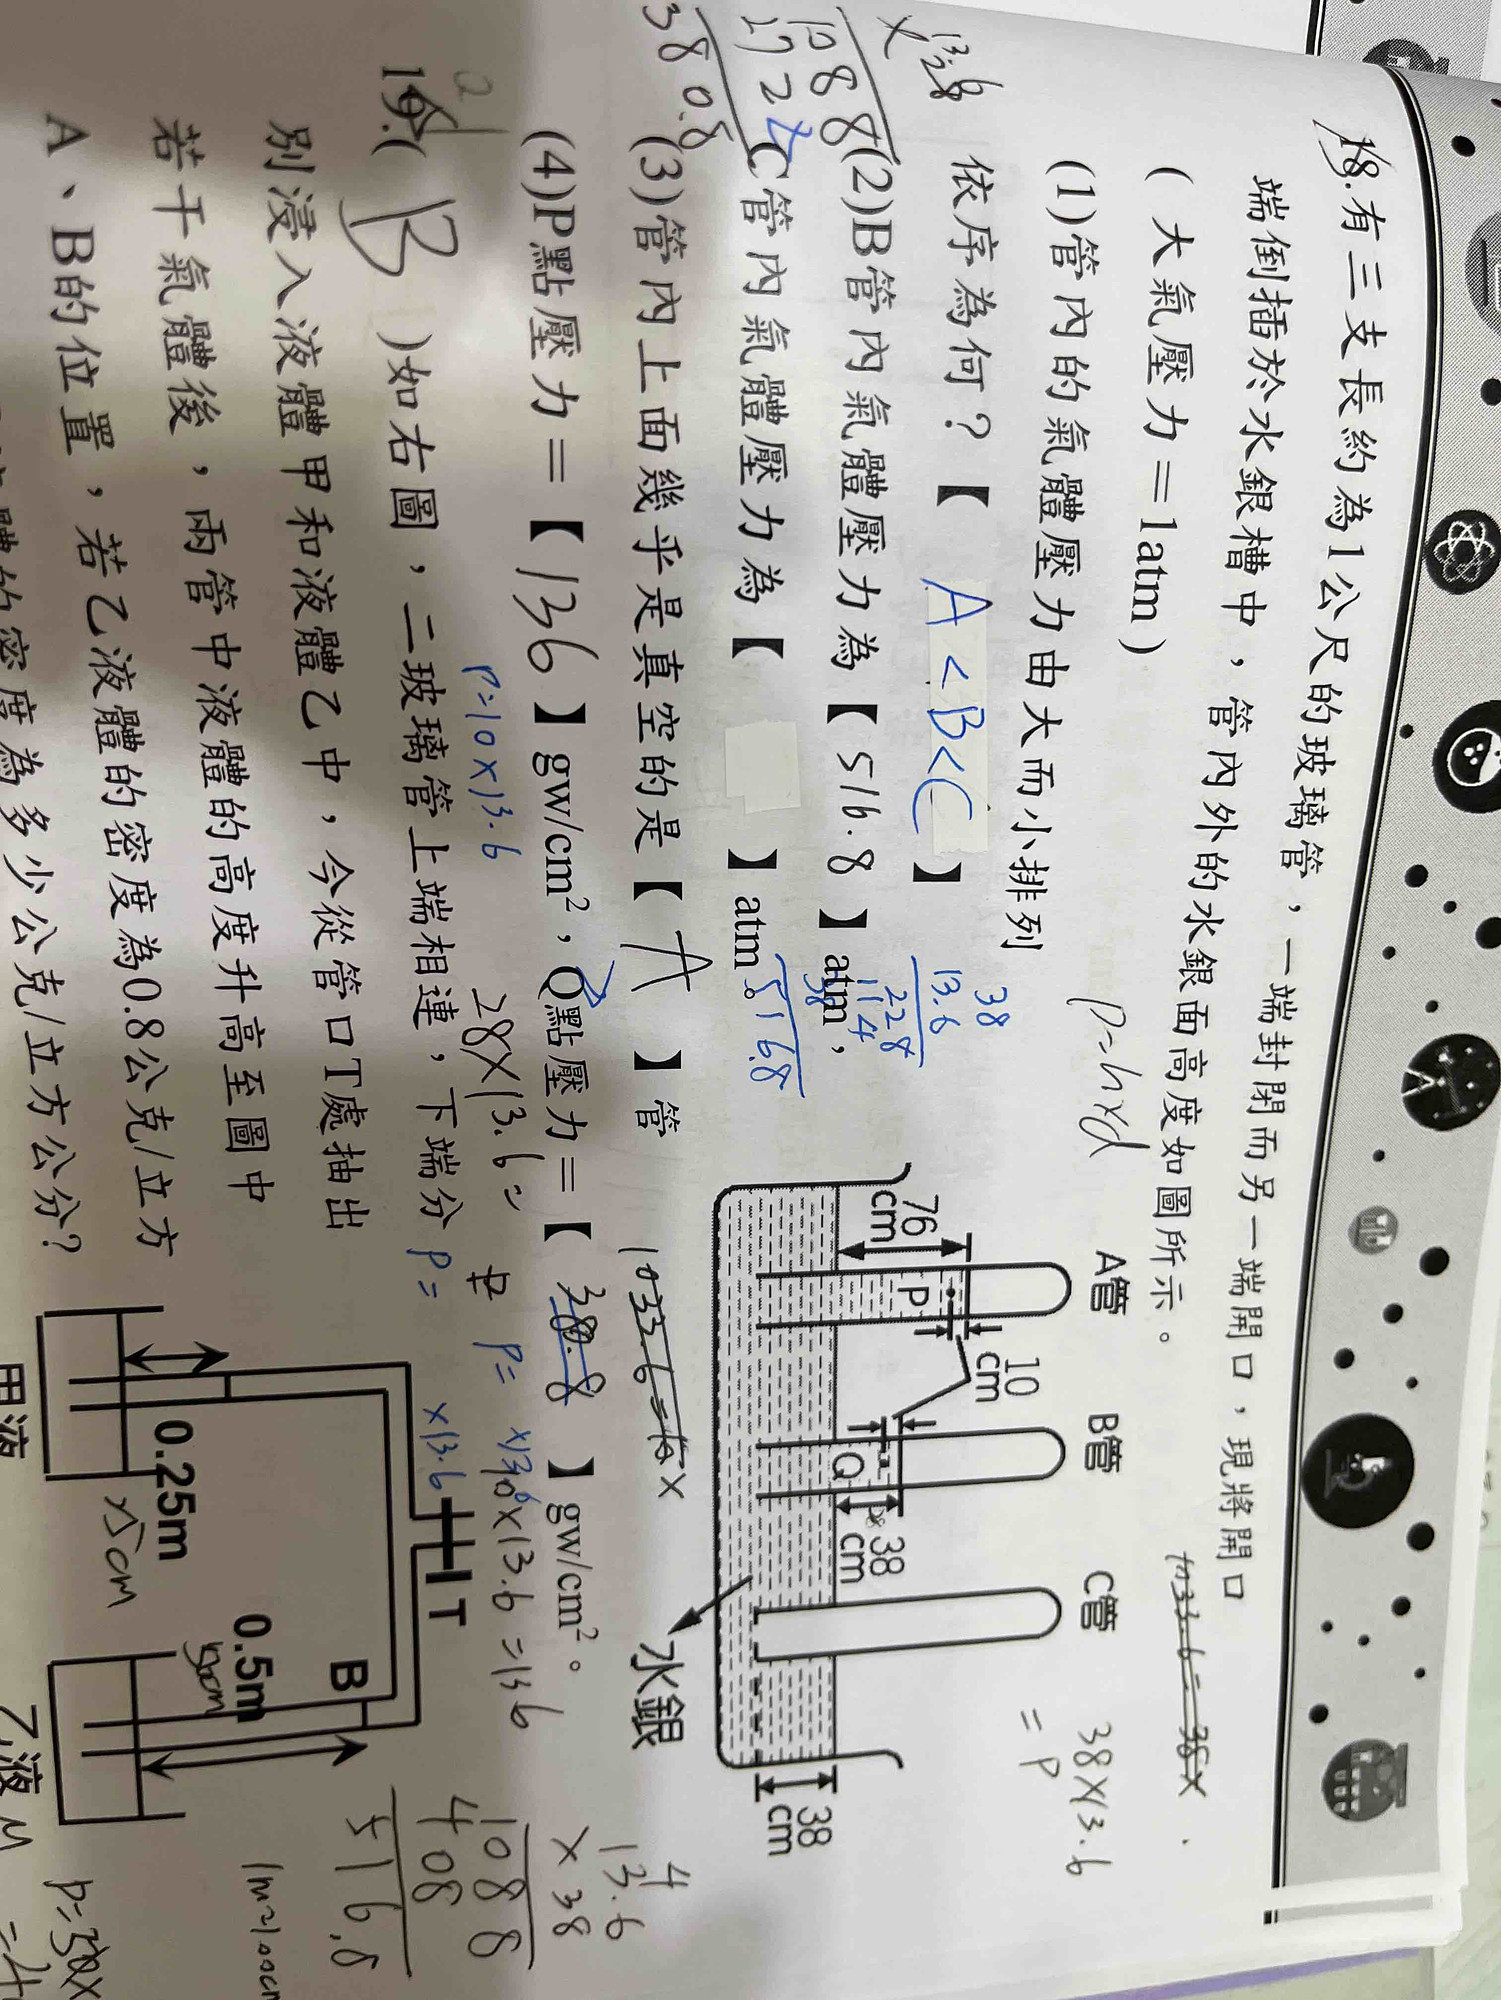 18.有三支長約為1公尺的玻璃管，一端封閉而另一端開口，現將開口
端倒插於水銀槽中，管內外的水銀面高度如圖所示。
(大氣壓力=1atm)
(1)管內的氣體壓力由大而小排列
依序為何?【 A<B<C 】
(2)B管內氣體壓力為【 516.8 】atm,
C管內氣體壓力為【 】atm。
(3)管內上面幾乎是真空的是【 A 】管
(4)P點壓力=【 136 】gw/cm²,Q點壓力=【 380.8 】gw/cm²。
P=h×d
38×13.6
=P
38
13.6
228
114
38
516.8
13.6
1088
272
380.8
P=10×13.6
28×13.6=
P=
×13.6
P=
10×13.6=136
1033.6
A管
B管
C管
76
cm
P
10
cm
Q
38
cm
38
cm
水銀
13.6
×38
1088
408
516.8
19.( B )如右圖，二玻璃管上端相連，下端分
別浸入液體甲和液體乙中，今從管口T處抽出
若干氣體後，兩管中液體的高度升高至圖中
A、B的位置，若乙液體的密度為0.8公克/立方
體的密度為多少公克/立方公分?
T
B
0.25m
0.5m
甲液
乙液